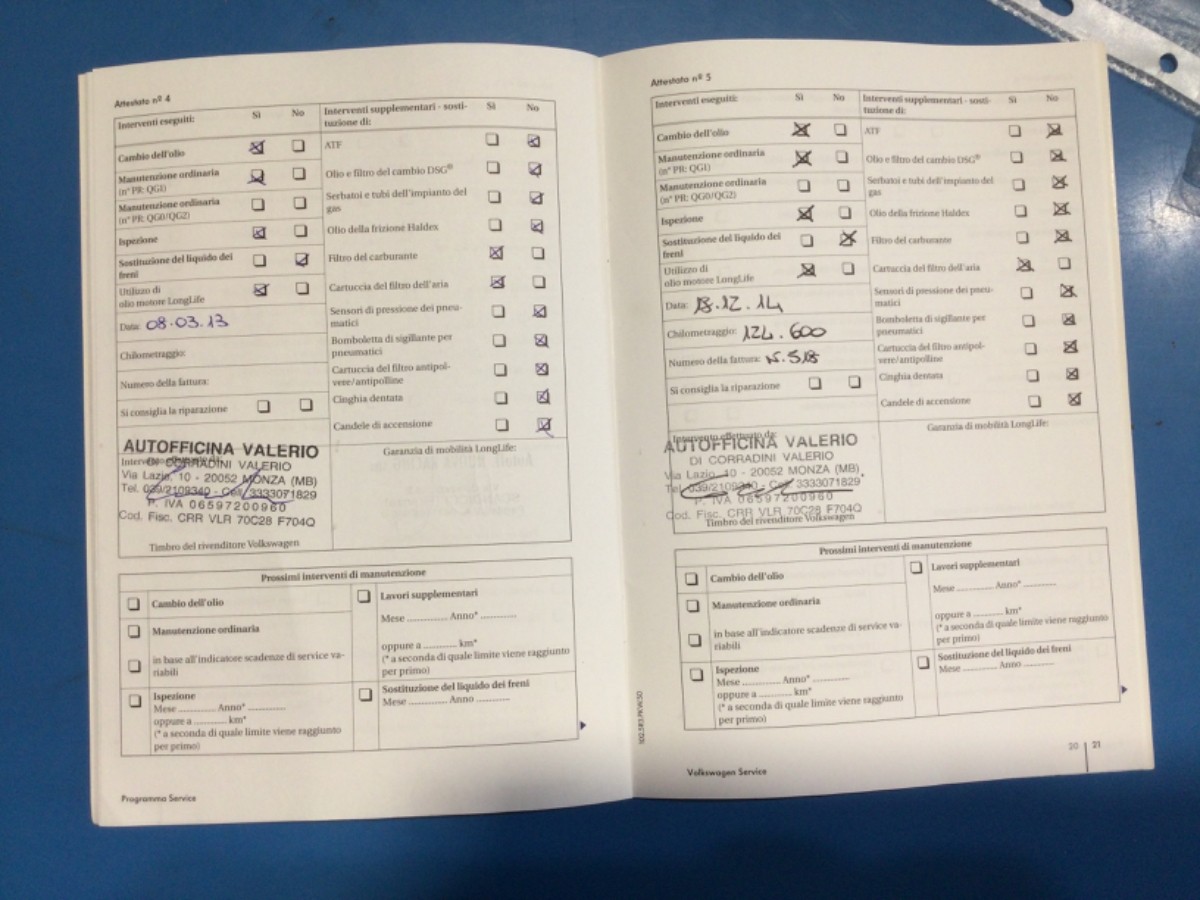 Attestato nº 4
Interventi eseguiti: Sì No
Cambio dell'olio
Manutenzione ordinaria
(nº PR: QG1)
Manutenzione ordinaria
(nº PR: QG0/QG2)
Ispezione
Sostituzione del liquido dei
freni
Utilizzo di
olio motore LongLife
Data: 08.03.13
Chilometraggio:
Numero della fattura:
Si consiglia la riparazione
Interventi supplementari - sosti-
tuzione di: Sì No
ATF
Olio e filtro del cambio DSG®
Serbatoi e tubi dell'impianto del
gas
Olio della frizione Haldex
Filtro del carburante
Cartuccia del filtro dell'aria
Sensori di pressione dei pneu-
matici
Bomboletta di sigillante per
pneumatici
Cartuccia del filtro antipol-
vere/antipolline
Cinghia dentata
Candele di accensione
AUTOFFICINA VALERIO
DI CORRADINI VALERIO
Via Lazio, 10 - 20052 MONZA (MB)
Tel. 039/2109340 - Cell. 3333071829
P. IVA 06597200960
Cod. Fisc. CRR VLR 70C28 F704Q
Timbro del rivenditore Volkswagen
Garanzia di mobilità LongLife:
Prossimi interventi di manutenzione
Cambio dell'olio
Manutenzione ordinaria
in base all'indicatore scadenze di service va-
riabili
Ispezione
Mese .............. Anno* ..............
oppure a ............ km*
(* a seconda di quale limite viene raggiunto
per primo)
Lavori supplementari
Mese .............. Anno* ..............
oppure a ............ km*
(* a seconda di quale limite viene raggiunto
per primo)
Sostituzione del liquido dei freni
Mese .............. Anno ..............
Programma Service
Attestato nº 5
Interventi eseguiti: Sì No
Cambio dell'olio
Manutenzione ordinaria
(nº PR: QG1)
Manutenzione ordinaria
(nº PR: QG0/QG2)
Ispezione
Sostituzione del liquido dei
freni
Utilizzo di
olio motore LongLife
Data: 18.12.14
Chilometraggio: 124.600
Numero della fattura: N.518
Si consiglia la riparazione
Interventi supplementari - sosti-
tuzione di: Sì No
ATF
Olio e filtro del cambio DSG®
Serbatoi e tubi dell'impianto del
gas
Olio della frizione Haldex
Filtro del carburante
Cartuccia del filtro dell'aria
Sensori di pressione dei pneu-
matici
Bomboletta di sigillante per
pneumatici
Cartuccia del filtro antipol-
vere/antipolline
Cinghia dentata
Candele di accensione
Intervento effettuato da:
AUTOFFICINA VALERIO
DI CORRADINI VALERIO
Via Lazio, 10 - 20052 MONZA (MB)
Tel. 039/2109340 - Cell. 3333071829
P. IVA 06597200960
Cod. Fisc. CRR VLR 70C28 F704Q
Timbro del rivenditore Volkswagen
Garanzia di mobilità LongLife:
Prossimi interventi di manutenzione
Cambio dell'olio
Manutenzione ordinaria
in base all'indicatore scadenze di service va-
riabili
Ispezione
Mese .............. Anno* ..............
oppure a ............ km*
(* a seconda di quale limite viene raggiunto
per primo)
Lavori supplementari
Mese .............. Anno* ..............
oppure a ............ km*
(* a seconda di quale limite viene raggiunto
per primo)
Sostituzione del liquido dei freni
Mese .............. Anno ..............
Volkswagen Service
20 | 21